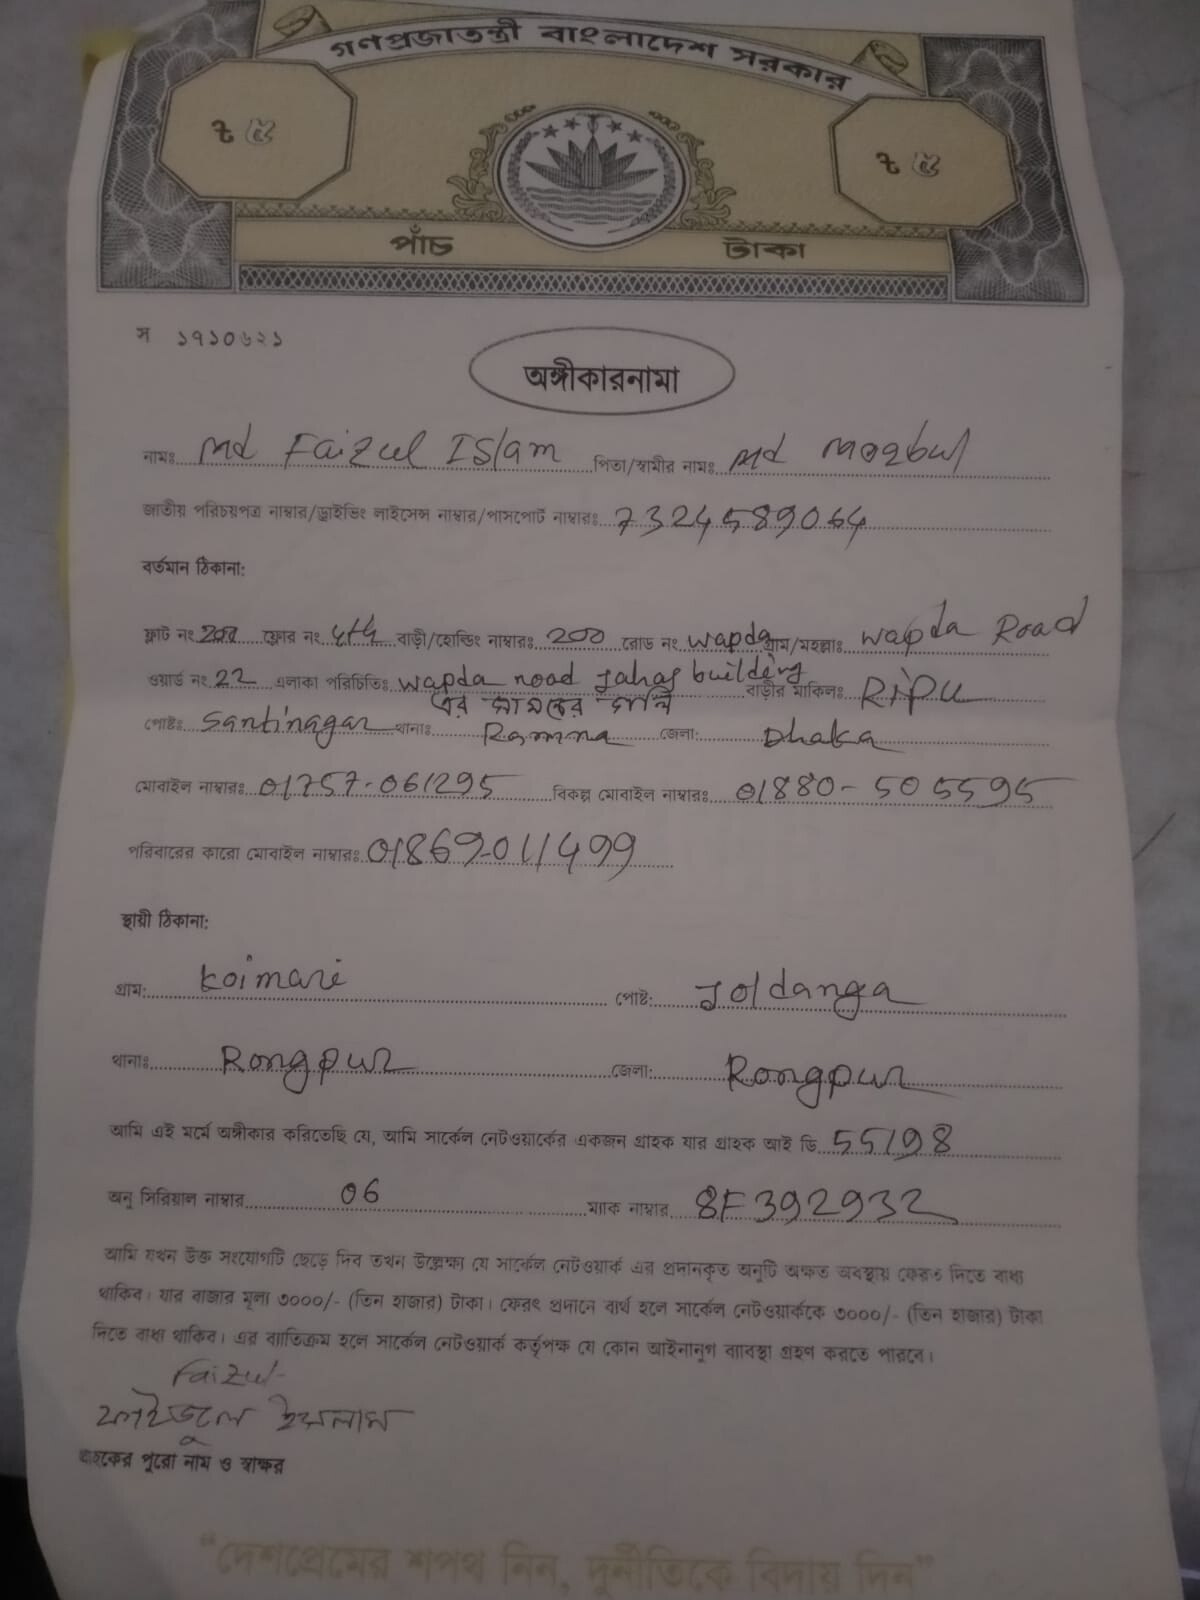 গণপ্রজাতন্ত্রী বাংলাদেশ সরকার
৳ ৫ ৳ ৫
পাঁচ টাকা
স ১৭১০৬২১
অঙ্গীকারনামা
নামঃ Md Faizul Islam পিতা/স্বামীর নামঃ Md Moqbul
জাতীয় পরিচয়পত্র নাম্বার/ড্রাইভিং লাইসেন্স নাম্বার/পাসপোর্ট নাম্বারঃ 7324589064
বর্তমান ঠিকানা:
ফ্লাট নং ফ্লোর নং বাড়ী/হোল্ডিং নাম্বারঃ 200 রোড নং wapda গ্রাম/মহল্লাঃ wapda Road
ওয়ার্ড নং 22 এলাকা পরিচিতিঃ wapda road building বাড়ীর মালিকঃ Ripu
এর সামনের গলি
পোষ্টঃ Santinagar থানাঃ Ramna জেলা: Dhaka
মোবাইল নাম্বারঃ 01757-061295 বিকল্প মোবাইল নাম্বারঃ 01880-505595
পরিবারের কারো মোবাইল নাম্বারঃ 01869-011499
স্থায়ী ঠিকানা:
গ্রাম: Koimari পোষ্ট: Joldanga
থানাঃ Rongpur জেলা: Rongpur
আমি এই মর্মে অঙ্গীকার করিতেছি যে, আমি সার্কেল নেটওয়ার্কের একজন গ্রাহক যার গ্রাহক আই ডি 55198
অনু সিরিয়াল নাম্বার 06 ম্যাক নাম্বার 8F392932
আমি যখন উক্ত সংযোগটি ছেড়ে দিব তখন উল্লেক্ষ্য যে সার্কেল নেটওয়ার্ক এর প্রদানকৃত অনুটি অক্ষত অবস্থায় ফেরত দিতে বাধ্য
থাকিব। যার বাজার মূল্য ৩০০০/- (তিন হাজার) টাকা। ফেরৎ প্রদানে ব্যর্থ হলে সার্কেল নেটওয়ার্ককে ৩০০০/- (তিন হাজার) টাকা
দিতে বাধ্য থাকিব। এর ব্যতিক্রম হলে সার্কেল নেটওয়ার্ক কর্তৃপক্ষ যে কোন আইনানুগ ব্যাবস্থা গ্রহণ করতে পারবে।
Faizul
ফাইজুল ইসলাম
গ্রাহকের পুরো নাম ও স্বাক্ষর
“দেশপ্রেমের শপথ নিন, দুর্নীতিকে বিদায় দিন”